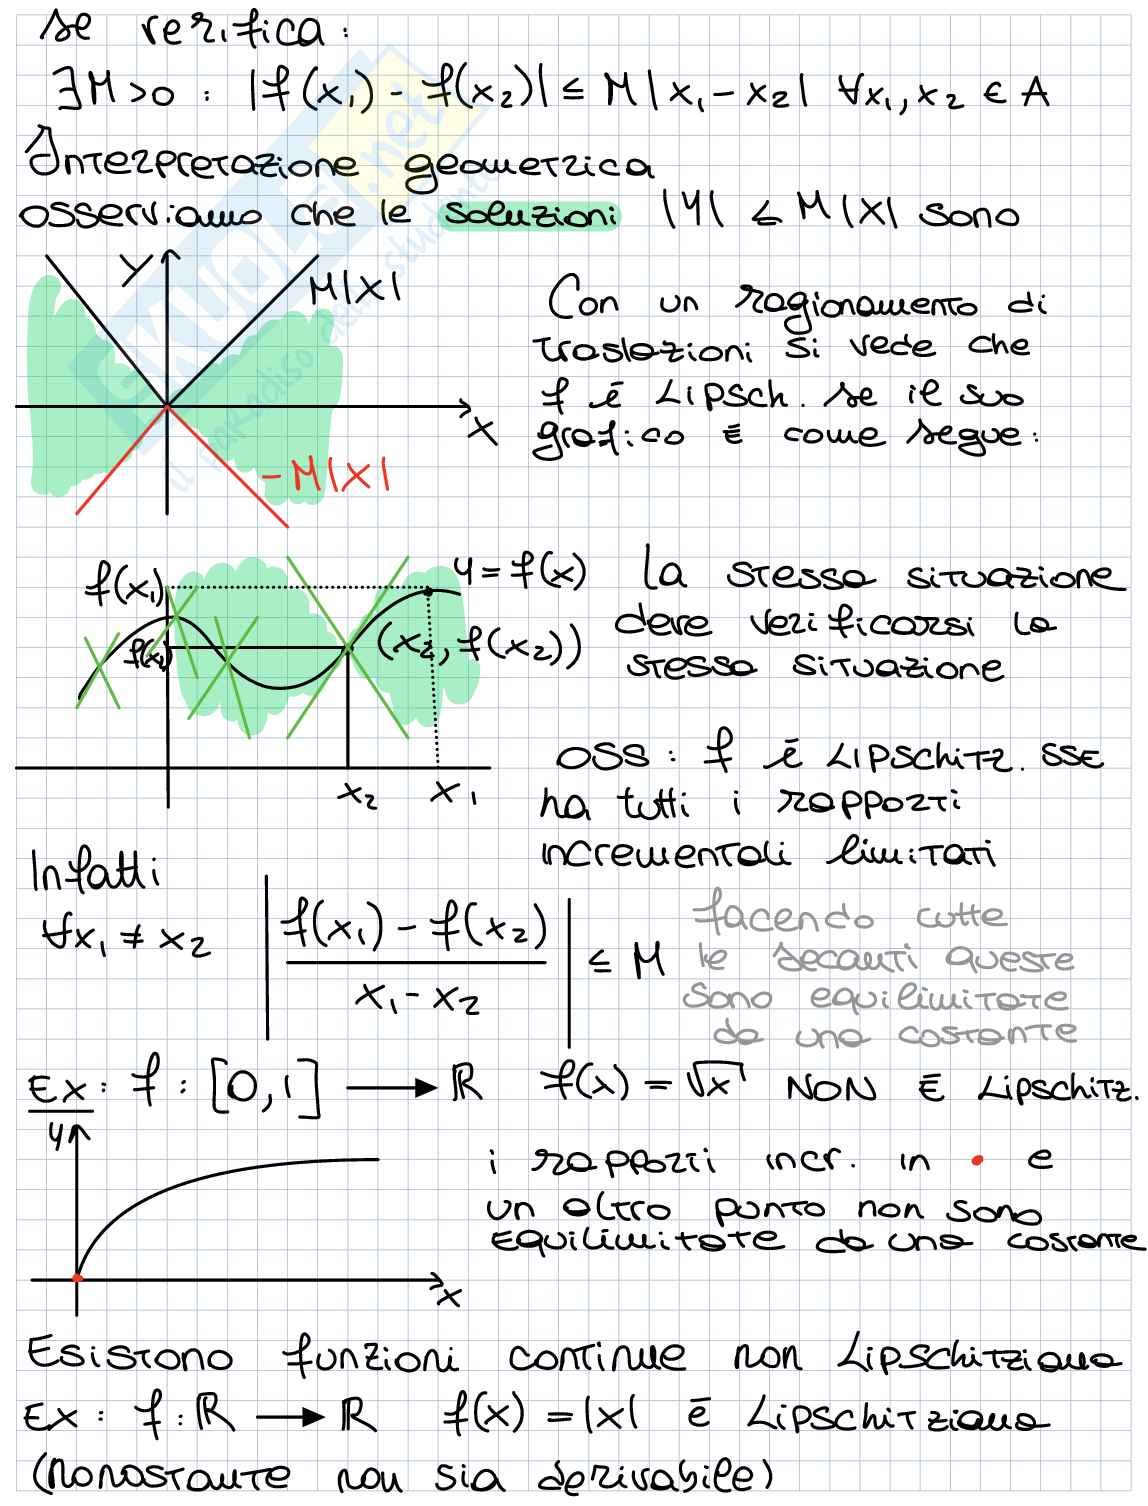 se verifica:
∃M>0 : |f(x₁) - f(x₂)| ≤ M|x₁-x₂| ∀x₁,x₂ ∈ A
Interpretazione geometrica
osserviamo che le soluzioni |Y| ≤ M|X| sono
Y
M|X|
X
-M|X|
Con un ragionamento di
traslazioni si vede che
f é Lipsch. se il suo
grafico é come segue:
f(x₁)
y=f(x)
f(x₂)
(x₂, f(x₂))
x₂ x₁
La stessa situazione
deve verificarsi la
stessa situazione
OSS: f é Lipschitz. SSE
ha tutti i rapporti
incrementali limitati
Infatti
∀x₁ ≠ x₂ |f(x₁) - f(x₂) / x₁ - x₂| ≤ M
facendo tutte
le secanti queste
sono equilimitate
da una costante
Ex: f: [0,1] → ℝ f(x) = √x NON É Lipschitz.
y
x
i rapporti incr. in • e
un altro punto non sono
equilimitate da una costante
Esistono funzioni continue non Lipschitziana
Ex: f: ℝ → ℝ f(x) = |x| é Lipschitziana
(nonostante non sia derivabile)
SKUOLA.net
il paradiso dello studente